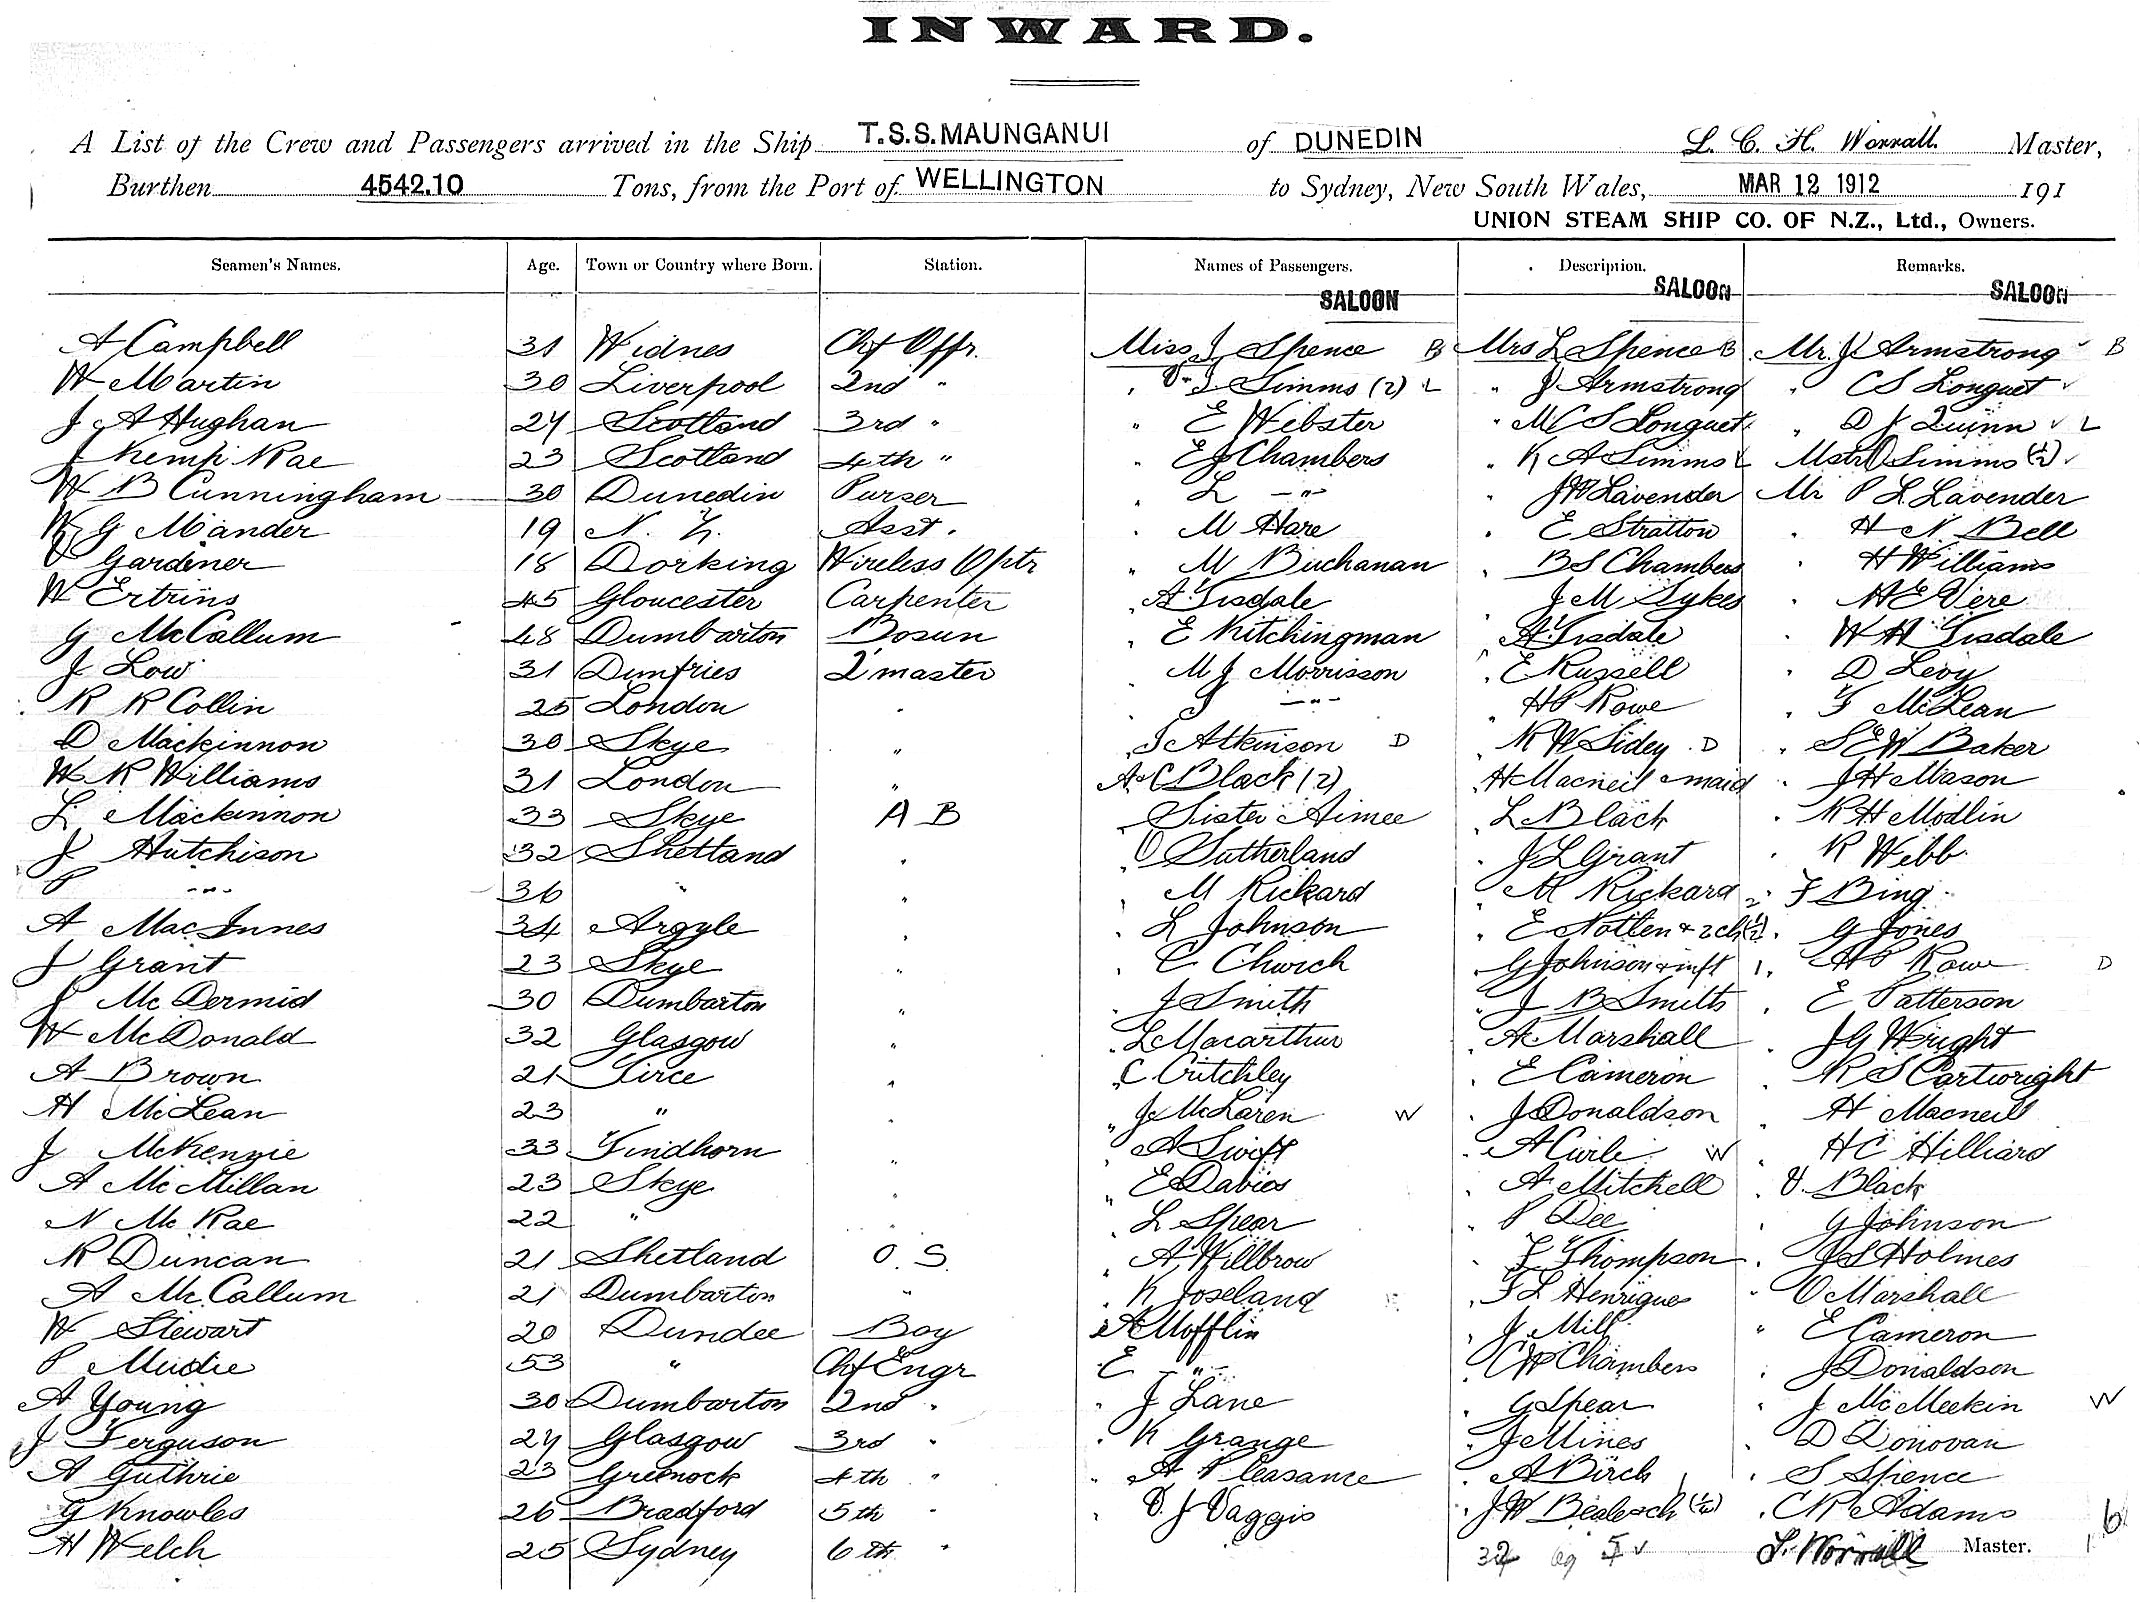 INWARD.
A List of the Crew and Passengers arrived in the Ship T.S.S. MAUNGANUI of DUNEDIN L. C. H. Worrall. Master,
Burthen 4542.10 Tons, from the Port of WELLINGTON to Sydney, New South Wales, MAR 12 1912 191
UNION STEAM SHIP CO. OF N.Z., Ltd., Owners.
Seamen's Names. Age. Town or Country where Born. Station. Names of Passengers. Description. Remarks.
SALOON SALOON SALOON
A Campbell 31 Widnes Chf Offr. Miss J Spence B Mrs L Spence B Mr. J Armstrong B
W Martin 30 Liverpool 2nd " Simms (2) L " J Armstrong " C S Longuet
J A Hughan 24 Scotland 3rd " " E Webster " M C S Longuet " D J Quinn L
J Kemp Rae 23 Scotland 4th " " E J Chambers " K A Simms L Mstr Simms (½)
W B Cunningham 30 Dunedin Purser " L -"- " J W Lavender Mr P L Lavender
W G Mander 19 N. Z. Asst. " M Hare " E Stratton " H N Bell
V Gardiner 18 Dorking Wireless Optr " M Buchanan " B S Chambers " H Williams
W Ertrins 45 Gloucester Carpenter " A Tisdale " J M Sykes " H E Vere
G McCallum 48 Dumbarton Bosun " E Kitchingman " A Tisdale " W H Tisdale
J Low 31 Dumfries Q'master " M J Morrisson " E Russell " D Levy
R R Collin 25 London " " J -"- " H P Rowe " F McLean
D Mackinnon 30 Skye " " J Atkinson D " K W Sidey D " S E W Baker
W R Williams 31 London " A & C Black (2) " H Macneil & maid " J H Mason
L Mackinnon 33 Skye A B " Sister Aimee " L Black " R H Modlin
J Hutchison 32 Shetland " " O Sutherland " J L Grant " R Webb
P -"- 36 " " " M Rickard " M Rickard " F Bing
A MacInnes 34 Argyle " " L Johnson " E Notten & 2 ch (½) " G Jones
J Grant 23 Skye " " C Chwich " G Johnson & inft 1 " H P Rowe D
J McDermid 30 Dumbarton " " J Smith " J B Smith " E Patterson
W McDonald 32 Glasgow " " L Macarthur " A Marshall " J G Wright
A Brown 21 Tiree " " C Critchley " E Cameron " R S Cartwright
H McLean 23 " " " J McLaren W " J Donaldson " H Macneil
J McKenzie 33 Findhorn " " A Swift " A Curle W " H C Hilliard
A McMillan 23 Skye " " E Davies " A Mitchell " V. Black
N McRae 22 " " " L Spear " P Dee " G Johnson
R Duncan 21 Shetland O. S. " A Willbrow " F Thompson " J S Holmes
A McCallum 21 Dumbarton " " K Joseland " F L Henriques " O Marshall
W Stewart 20 Dundee Boy " A Mofflin " J Mill " E Cameron
P Mudie 53 " Chf Engr E -"- " C W Chambers " J Donaldson
A Young 30 Dumbarton 2nd " " J Lane " G Spear " J McMeekin W
J Ferguson 24 Glasgow 3rd " " K Grange " J Mines " D Donovan
A Guthrie 23 Greenock 4th " " A Pleasance " A Birch " S Spence
G Knowles 26 Bradford 5th " " V. J Vaggis " J W (½) " C R Adams
H Welch 25 Sydney 6th " L. Worrall Master. 6